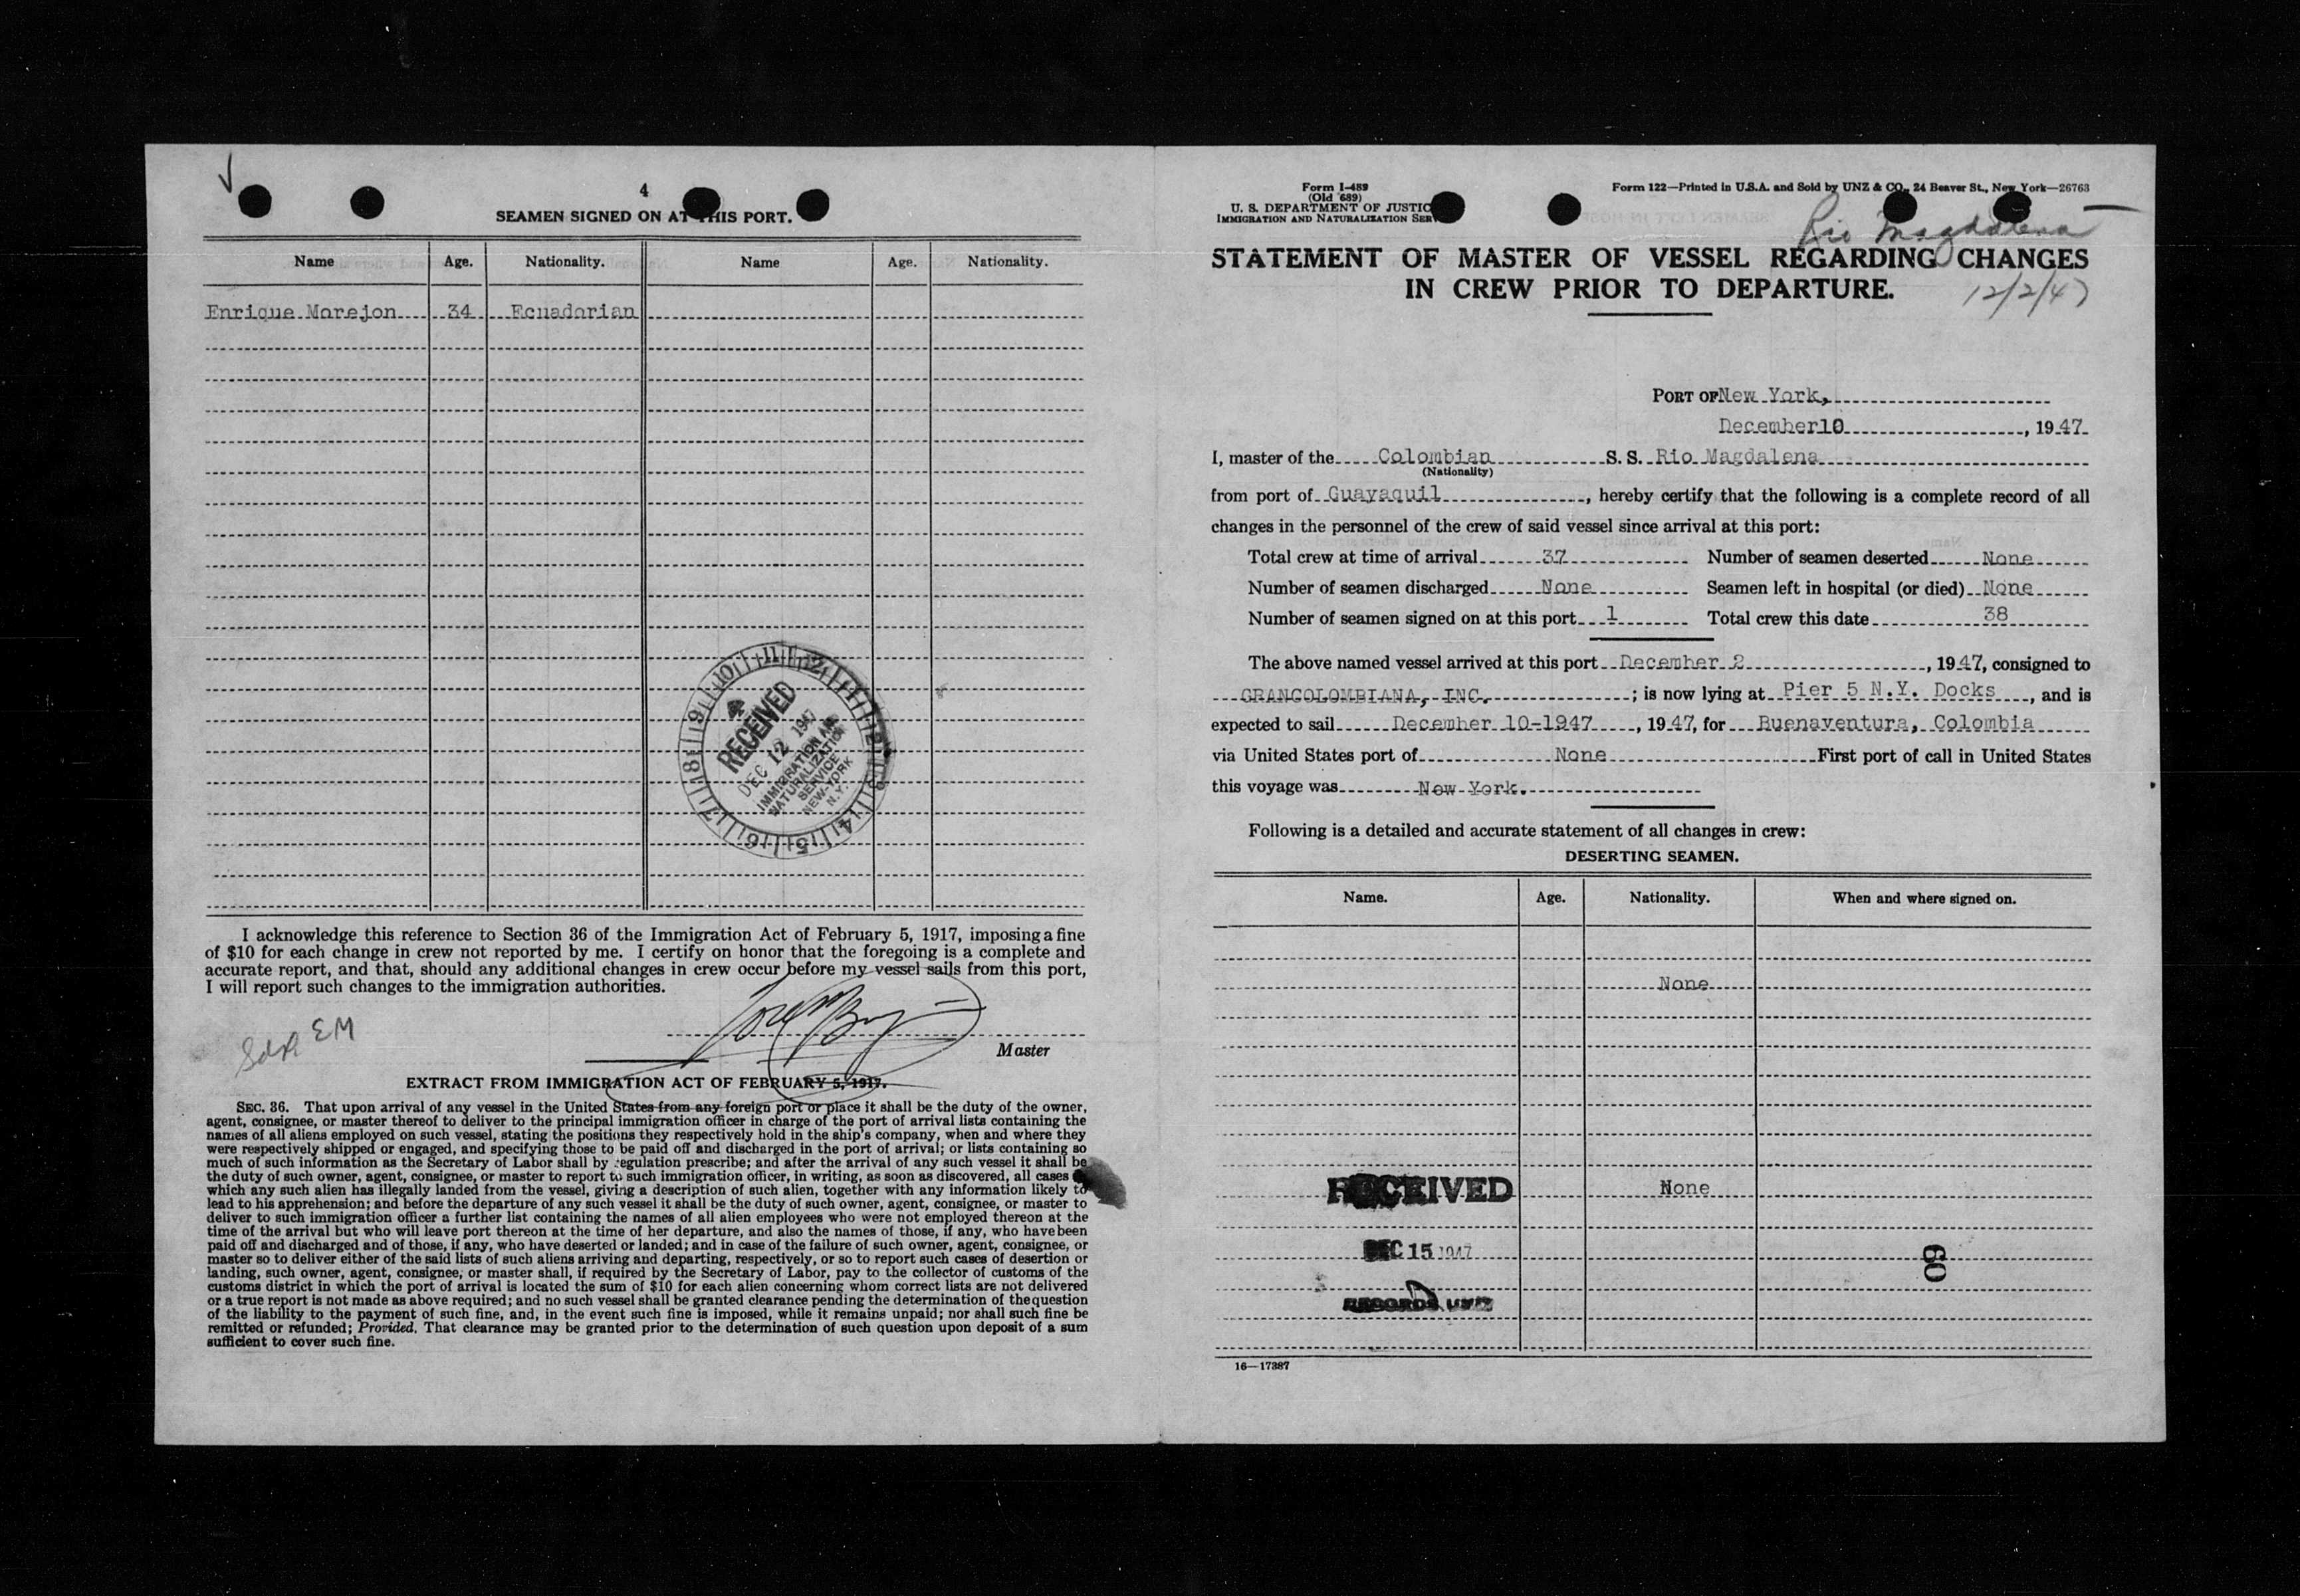 4
SEAMEN SIGNED ON AT THIS PORT.
Name Age. Nationality. Name Age. Nationality.
Enrique Morejon 34 Ecuadorian
RECEIVED
DEC 12 1947
IMMIGRATION AND
NATURALIZATION
SERVICE
NEW-YORK
N.Y.
I acknowledge this reference to Section 36 of the Immigration Act of February 5, 1917, imposing a fine
of $10 for each change in crew not reported by me. I certify on honor that the foregoing is a complete and
accurate report, and that, should any additional changes in crew occur before my vessel sails from this port,
I will report such changes to the immigration authorities.
EM
Master
EXTRACT FROM IMMIGRATION ACT OF FEBRUARY 5, 1917.
SEC. 36. That upon arrival of any vessel in the United States from any foreign port or place it shall be the duty of the owner,
agent, consignee, or master thereof to deliver to the principal immigration officer in charge of the port of arrival lists containing the
names of all aliens employed on such vessel, stating the positions they respectively hold in the ship's company, when and where they
were respectively shipped or engaged, and specifying those to be paid off and discharged in the port of arrival; or lists containing so
much of such information as the Secretary of Labor shall by regulation prescribe; and after the arrival of any such vessel it shall be
the duty of such owner, agent, consignee, or master to report to such immigration officer, in writing, as soon as discovered, all cases
which any such alien has illegally landed from the vessel, giving a description of such alien, together with any information likely to
lead to his apprehension; and before the departure of any such vessel it shall be the duty of such owner, agent, consignee, or master to
deliver to such immigration officer a further list containing the names of all alien employees who were not employed thereon at the
time of the arrival but who will leave port thereon at the time of her departure, and also the names of those, if any, who have been
paid off and discharged and of those, if any, who have deserted or landed; and in case of the failure of such owner, agent, consignee, or
master so to deliver either of the said lists of such aliens arriving and departing, respectively, or so to report such cases of desertion or
landing, such owner, agent, consignee, or master shall, if required by the Secretary of Labor, pay to the collector of customs of the
customs district in which the port of arrival is located the sum of $10 for each alien concerning whom correct lists are not delivered
or a true report is not made as above required; and no such vessel shall be granted clearance pending the determination of the question
of the liability to the payment of such fine, and, in the event such fine is imposed, while it remains unpaid; nor shall such fine be
remitted or refunded; Provided, That clearance may be granted prior to the determination of such question upon deposit of a sum
sufficient to cover such fine.
Form I-489
(Old 689)
U. S. DEPARTMENT OF JUSTICE
IMMIGRATION AND NATURALIZATION SERVICE
Form 122—Printed in U.S.A. and Sold by UNZ & CO., 24 Beaver St., New York—26763
Rio Magdalena
STATEMENT OF MASTER OF VESSEL REGARDING CHANGES
IN CREW PRIOR TO DEPARTURE.
12/2/47
PORT OF New York,
December 10, 1947
I, master of the Colombian S. S. Rio Magdalena
(Nationality)
from port of Guayaquil, hereby certify that the following is a complete record of all
changes in the personnel of the crew of said vessel since arrival at this port:
Total crew at time of arrival 37 Number of seamen deserted None
Number of seamen discharged None Seamen left in hospital (or died) None
Number of seamen signed on at this port 1 Total crew this date 38
The above named vessel arrived at this port December 2, 1947, consigned to
GRANCOLOMBIANA, INC. ; is now lying at Pier 5 N.Y. Docks, and is
expected to sail December 10-1947, 1947, for Buenaventura, Colombia
via United States port of None First port of call in United States
this voyage was New York.
Following is a detailed and accurate statement of all changes in crew:
DESERTING SEAMEN.
Name. Age. Nationality. When and where signed on.
None
RECEIVED None
DEC 15 1947
60
RECORDS UNIT
16—17387